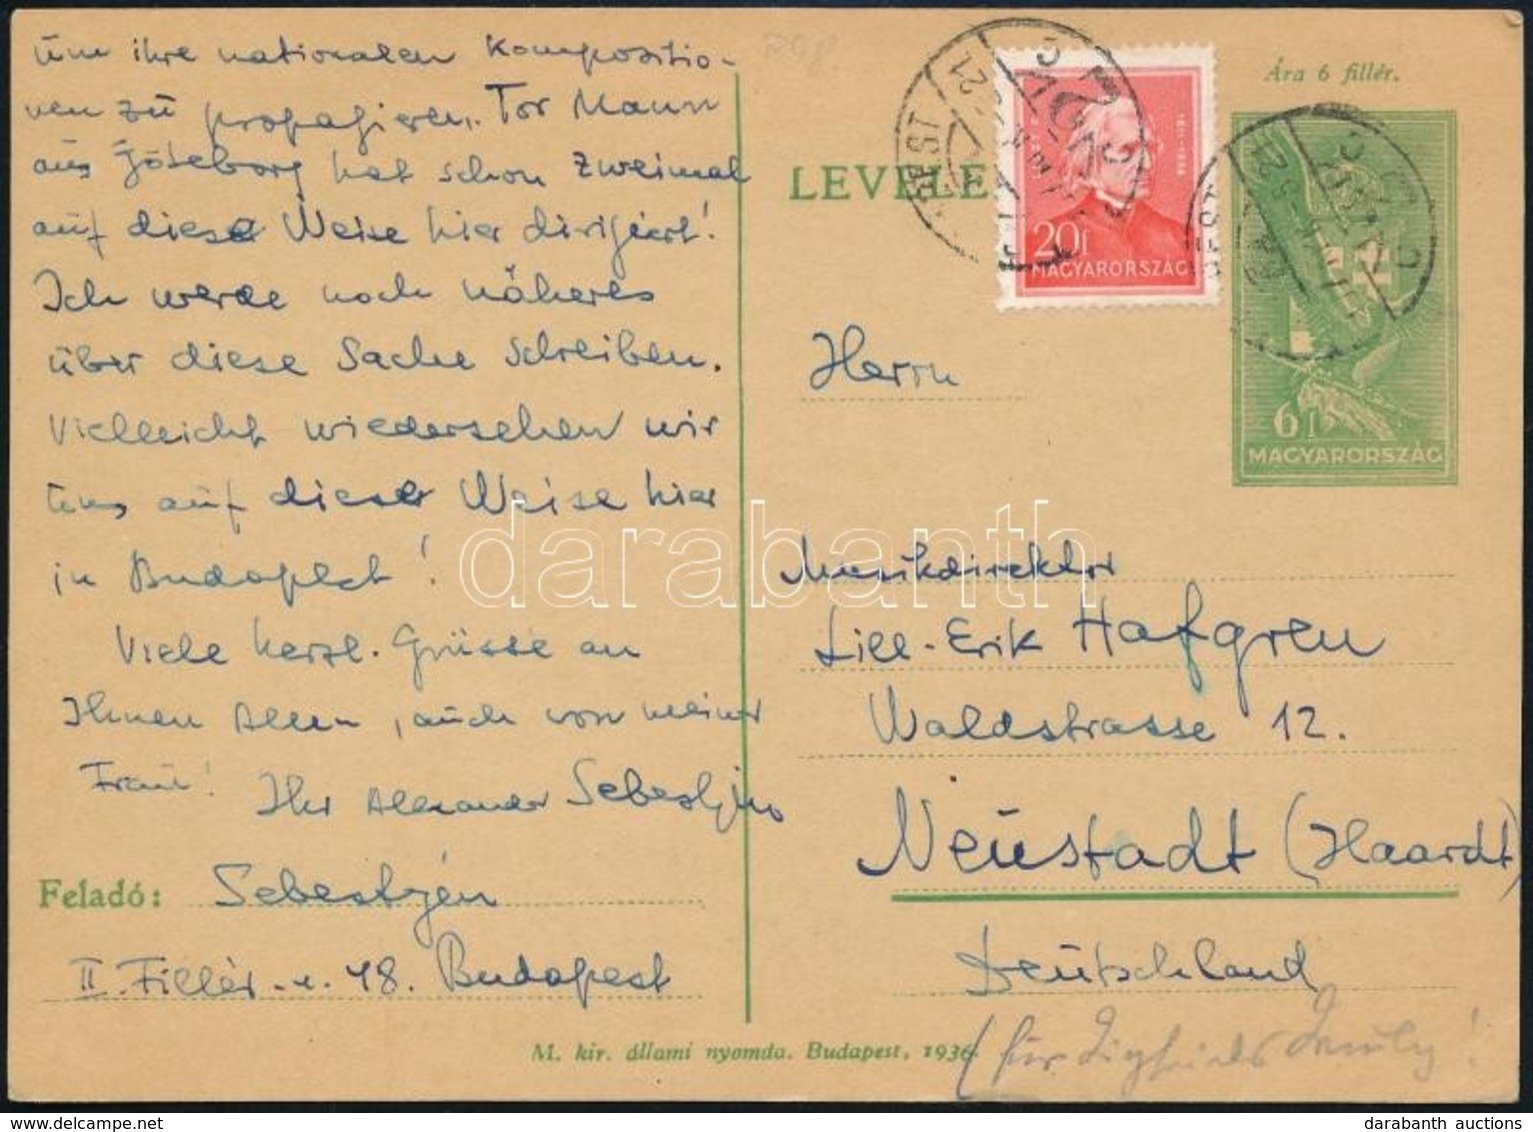 um ihre nationalen Kompositio-
nen zu propagieren. Tor Mann
aus Göteborg hat schon zweimal
auf dieser Weise hier dirigiert!
Ich werde noch näheres
über diese Sache schreiben.
Vielleicht wiedersehen wir
uns auf dieser Weise hier
in Budapest!
Viele herzl. Grüsse an
Ihnen Allen, auch von meiner
Frau!
Ihr Alexander Sebestyén
Feladó: Sebestyén
II. Fillér-u. 48. Budapest
Ára 6 fillér.
LEVELE
20f
MAGYARORSZÁG
6f
MAGYARORSZÁG
Herrn
Musikdirektor
Lill-Erik Hafgren
Waldstrasse 12.
Neustadt (Haardt)
Deutschland
M. kir. állami nyomda. Budapest, 1936.
darabanth
darabanth auctions